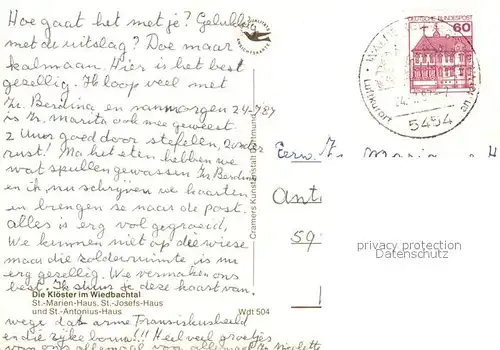 Hoe gaat het met je? Gelukkig
met de uitslag? Doe maar
kalmaan. Hier is het best
gezellig. Ik loop veel met
Zr. Berdina en vanmorgen 24-7-84
is Zr. Marita ook mee geweest
2 uur goed door stappen, zonder
rust! Ma het eten hebben we
wat spullen gewassen Zr. Berdina
en ik, nu schrijven we kaarten
en brengen ze naar de post.
alles is erg vol gegroeid,
We kunnen niet op die wiese
maar die zolderruimte is nu
erg gezellig. We vermaken ons
best. Ik stuur je deze kaart van-
Die Klöster im Wiedbachtal
St.-Marien-Haus, St.-Josefs-Haus
und St.-Antonius-Haus
Wdt 504
wege dat arme Fransiskusbeeld
en die rijke bouw!!! Heel veel groetjes
van ons allemaal voor allemaal Zr. Nicolette
Cramers Kunstanstalt Dortmund
DEUTSCHE BUNDESPOST
60
Luftkurort
5454
Eerw. Zr. Maria
Ant
59
privacy protection
Datenschutz